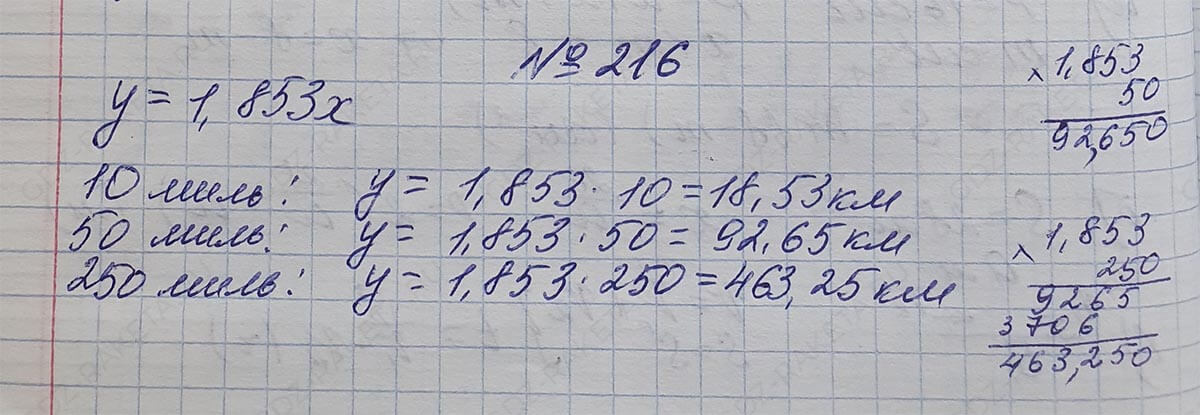 № 216
y = 1,853x
10 миль: y = 1,853 · 10 = 18,53 км
50 миль: y = 1,853 · 50 = 92,65 км
250 миль: y = 1,853 · 250 = 463,25 км
× 1,853
50
92,650
× 1,853
250
9265
3706
463,250